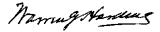 Warren G Harding